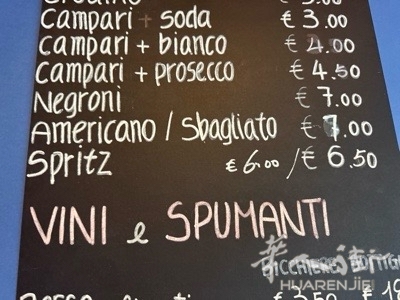 Campari + soda € 3.00
Campari + bianco € 4.00
Campari + prosecco € 4.50
Negroni € 7.00
Americano / Sbagliato € 7.00
Spritz € 6.00 / € 6.50
VINI e SPUMANTI
BICCHIERE
€ 3.50 €
HUARENJIE